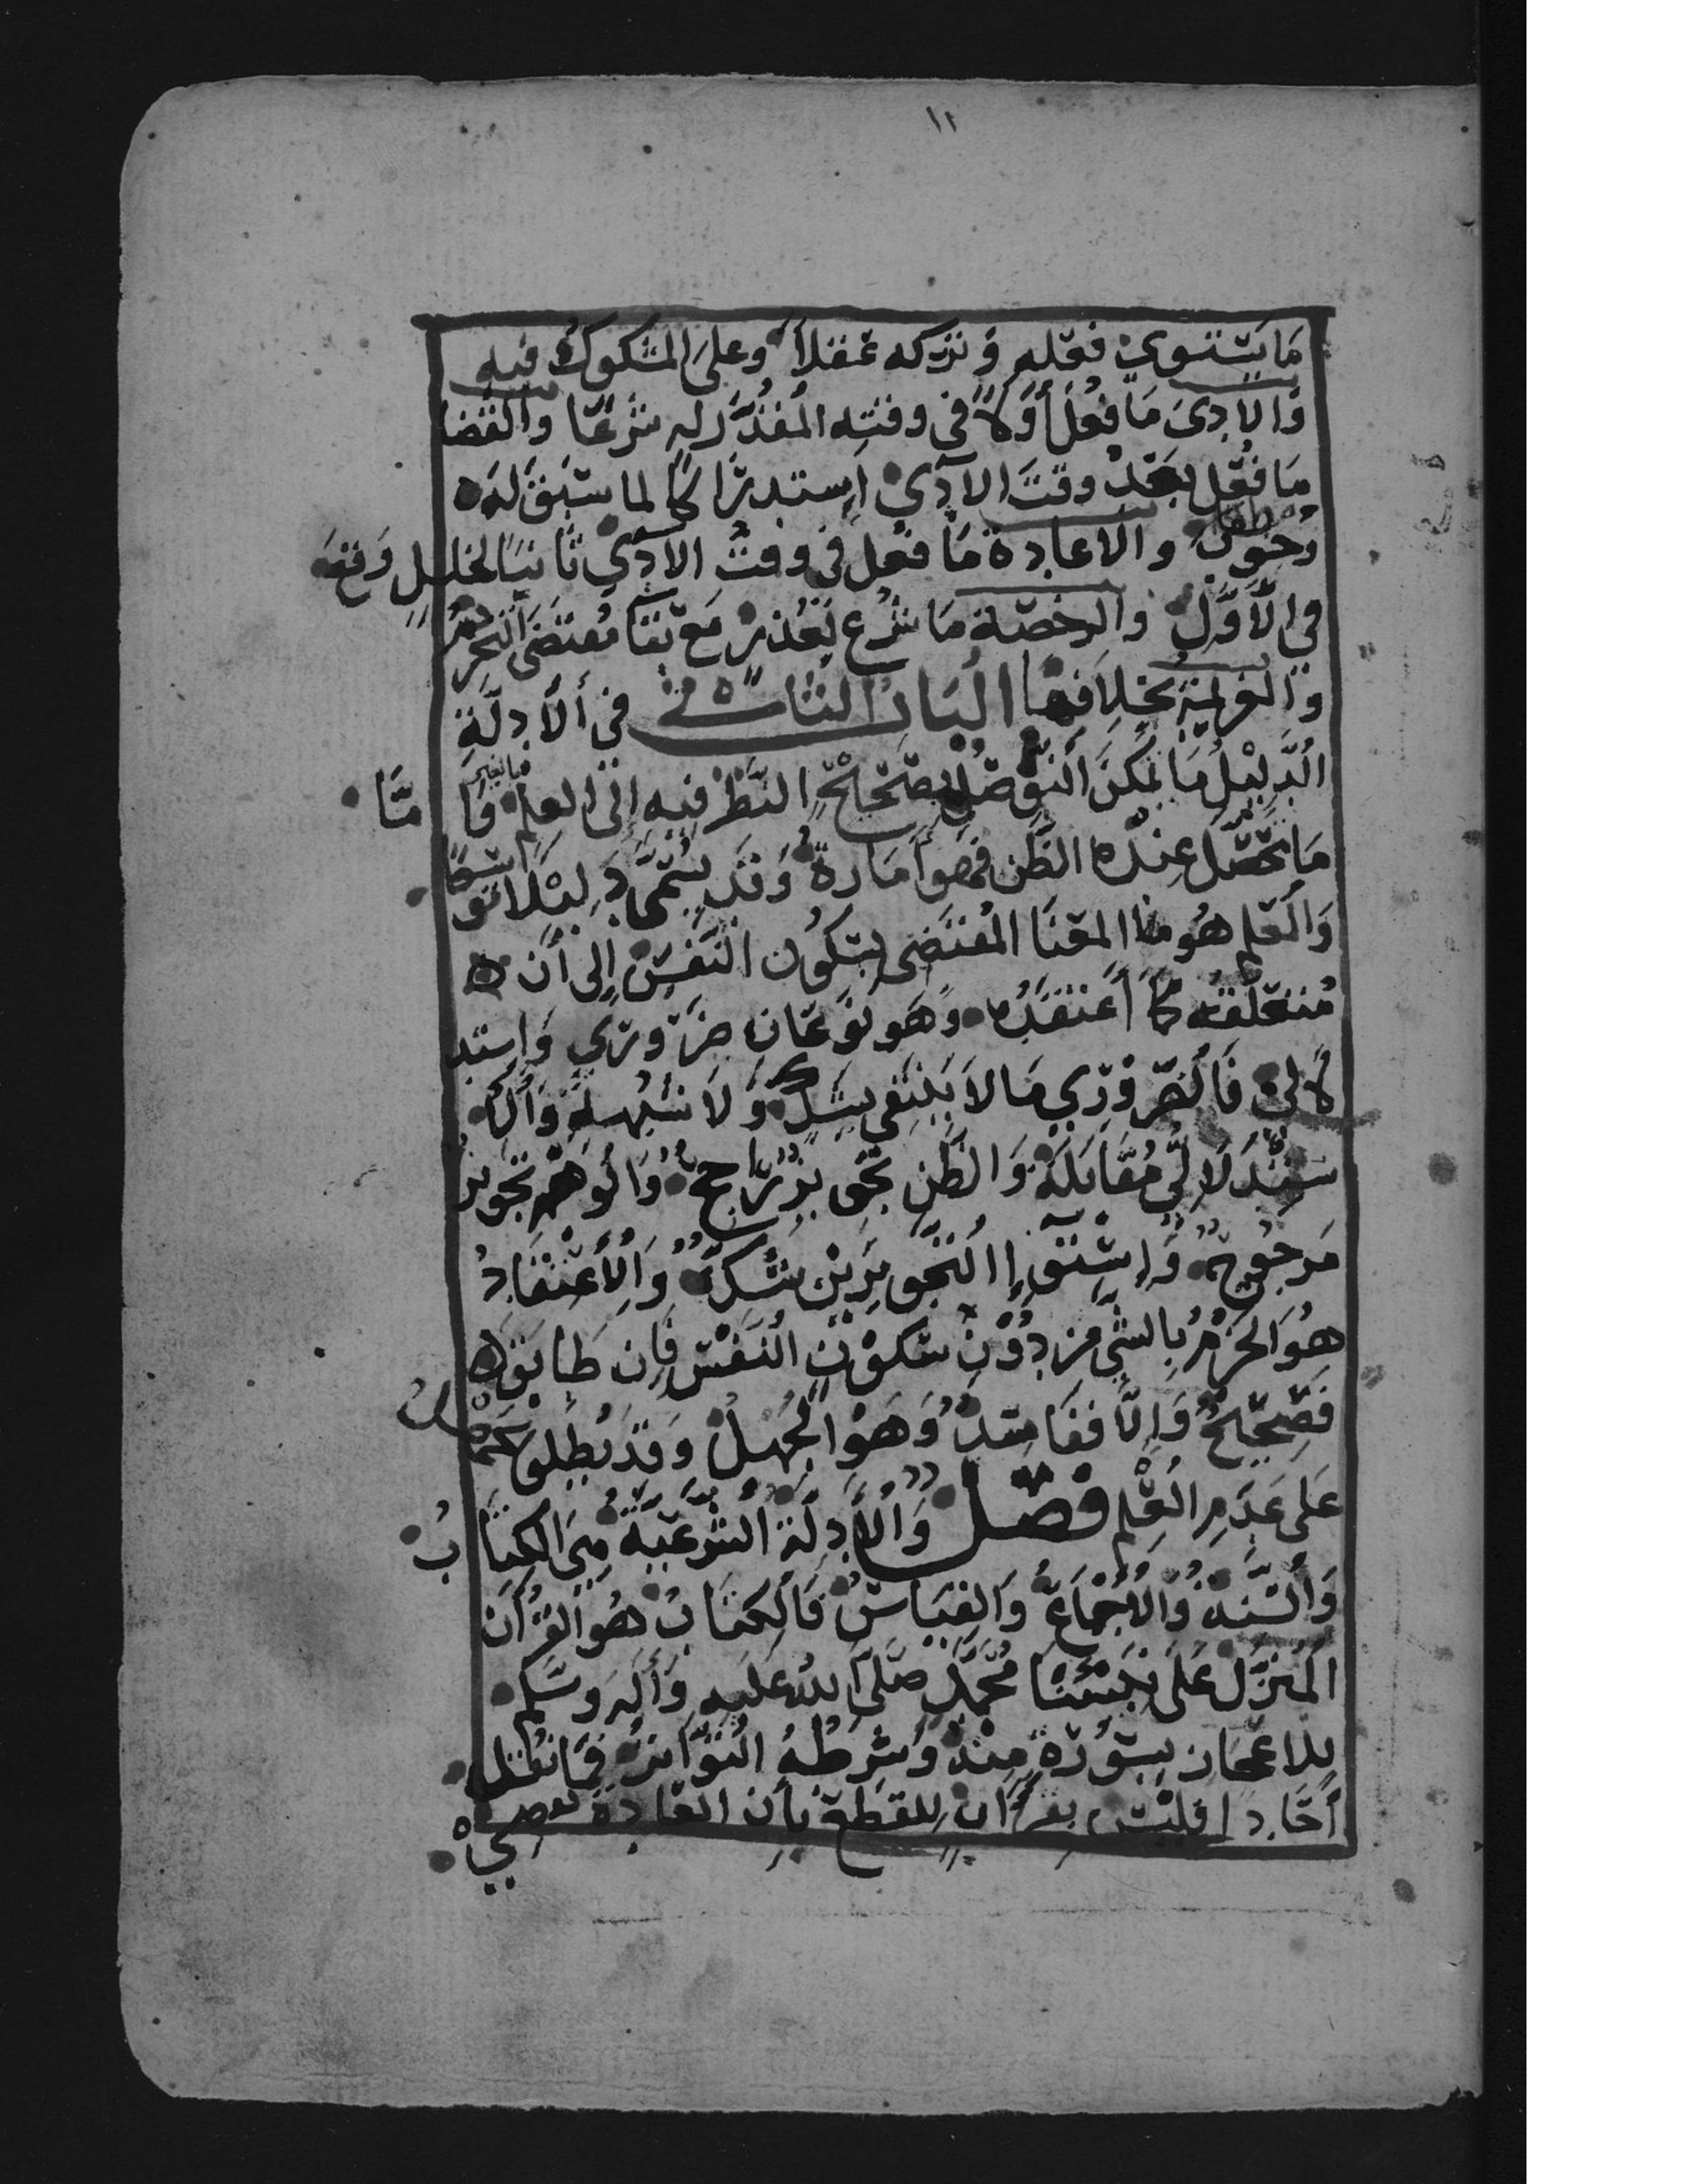 ١١
مَا يَسْتوي فعْله وَ تركه عَقلاً وعلى المشكوك فيه
وَالأدى مَا فُعِلَ أَوَّلاً في وقته المُقدَّر له شرْعًا والقضا
مَا فُعل بَعْدَ وقتَ الآدي إستدرَاكًا لما سَبق لهُ
وُجوبٌ والاعادة مَا فعل في وقت الآدي ثَانيًا لخللٍ وَقعَ
في الأَوَّل والرخصَة مَا شُرع لِعُذرْ مَعَ بَقَا مُقتَضَى التحْرِيم
والعَزيمةُ بخلافها البَابُ الثاني في الأَدِلّةِ
الدَّلِيْلُ مَا يُمكنَ التوَصّل بصَحِيْح النَّظر فيه الى العلم بالغير وَأ مَّا
مَا يحْصُل عِندَه الظَّن فهو أَمَارةٌ وَقدْ يُسَمَّى دَلِيْلاً توَسُّعًا
وَالعلم هُو المعْنَا المُقتَضى لسكُون النَّفسِ إلى أَن
مُتعَلقه كمَا أَعْتقَدُه وَهو نوْعَان ضَرُورَي وَاستد
لالي فَالضّرُوْرِي مَا لاَ يَنتَفي بِشَكٍ وَلاَ شُبْهَةٍ وَالا
سْتِدْلَالِيُّ مُقَابلَهُ وَالظّن تجْويزٌ رَاجحٌ وَالوَهْمُ تجْويزٌ
مَرجُوحٌ وَإسْتوَا التجْويزَيْن شَكٌ وَالأعْتقَادُ
هُوَ الجَزْمُ بِالشّي مِن دُوْنِ سَكوْن النَفْسِ فَإن طَابقَ
فَصَحِيْحٌ وَإلَّا ففَاسِدٌ وَهوُ الجَهلُ وَقدْ يُطلق
عَلى عَدَمِ العِلْم فصْل وَالأَدِلّةُ الشَّرْعيّةُ هِيَ الكِتَا بُ
وَالسُّنةُ وَالإجْمَاعُ وَالقِيَاسُ فَالكِتَابُ هُو القرْأَن
المُنزَّل عَلى نَبِيِّنَا مُحَمَّدٍ صَلَى الله عَليهِ وَأَلهِ وَسَلم
للاعجَاز بِسُوْرَةٍ مِنهُ وَشرْطهُ التوَاترُ فمَا نُقلَ
أَحَادا فليْسَ بِقرْأَن للقطع بأن العَادةَ تقضي